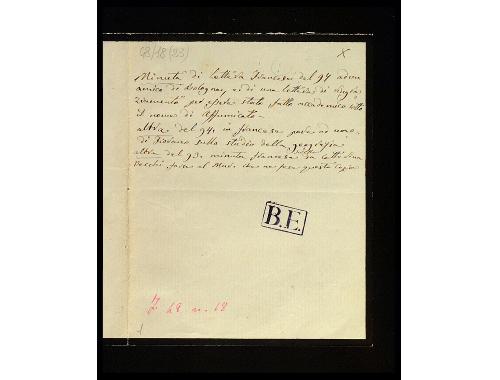 68/18(23)
X
Minuta di lettera francese del 94 ad un
amico di Bologna, e di una lettera di
per essere stato fatto accademico sotto
il nome di Affumicato.
altra del 94. in francese pure ad uno
di sullo studio della geografia
altra del 93. minuta francese
Vecchi questa copia
B.E.
F 28 n. 18
1